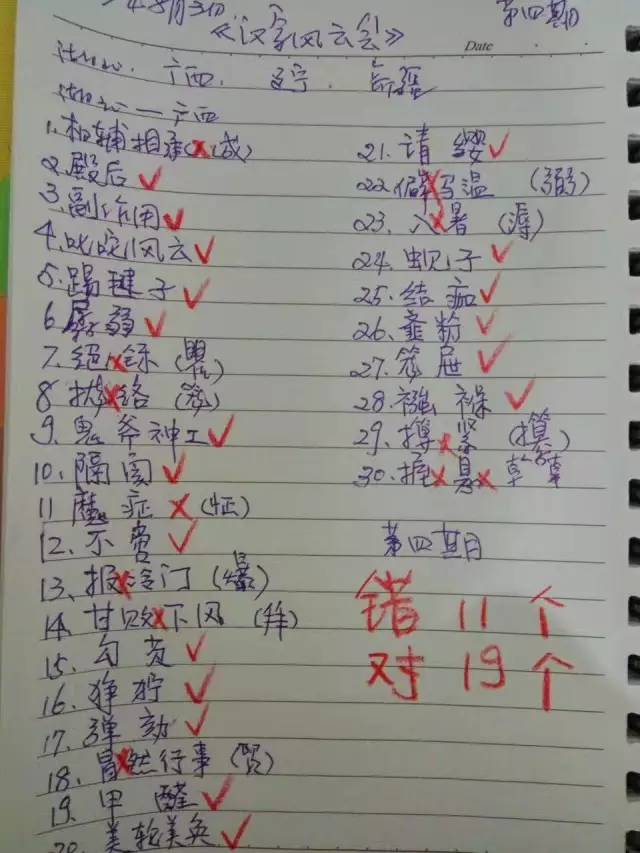 《汉字风云会》
第四期
Date
广西 . 辽宁 . 新疆
— 广西
1.相辅相承(成)
2.殿后
3.副作用
4.叱咤风云
5.踢毽子
6.孱弱
7.
8
9.鬼斧神工
10.隔阂
11 魔症(怔)
12.不赀
13.报冷门(爆)
14.甘败下风(拜)
15.勾芡
16.狰狞
17.弹劾
18.冒然行事(贸)
19.甲醛
20.美轮美奂
21.请缨
22.
23.入暑(溽)
24.子
25.结痂
26.齑粉
27.笼屉
28.襁褓
29.紧(攥)
30.
第四期
错11个
对19个